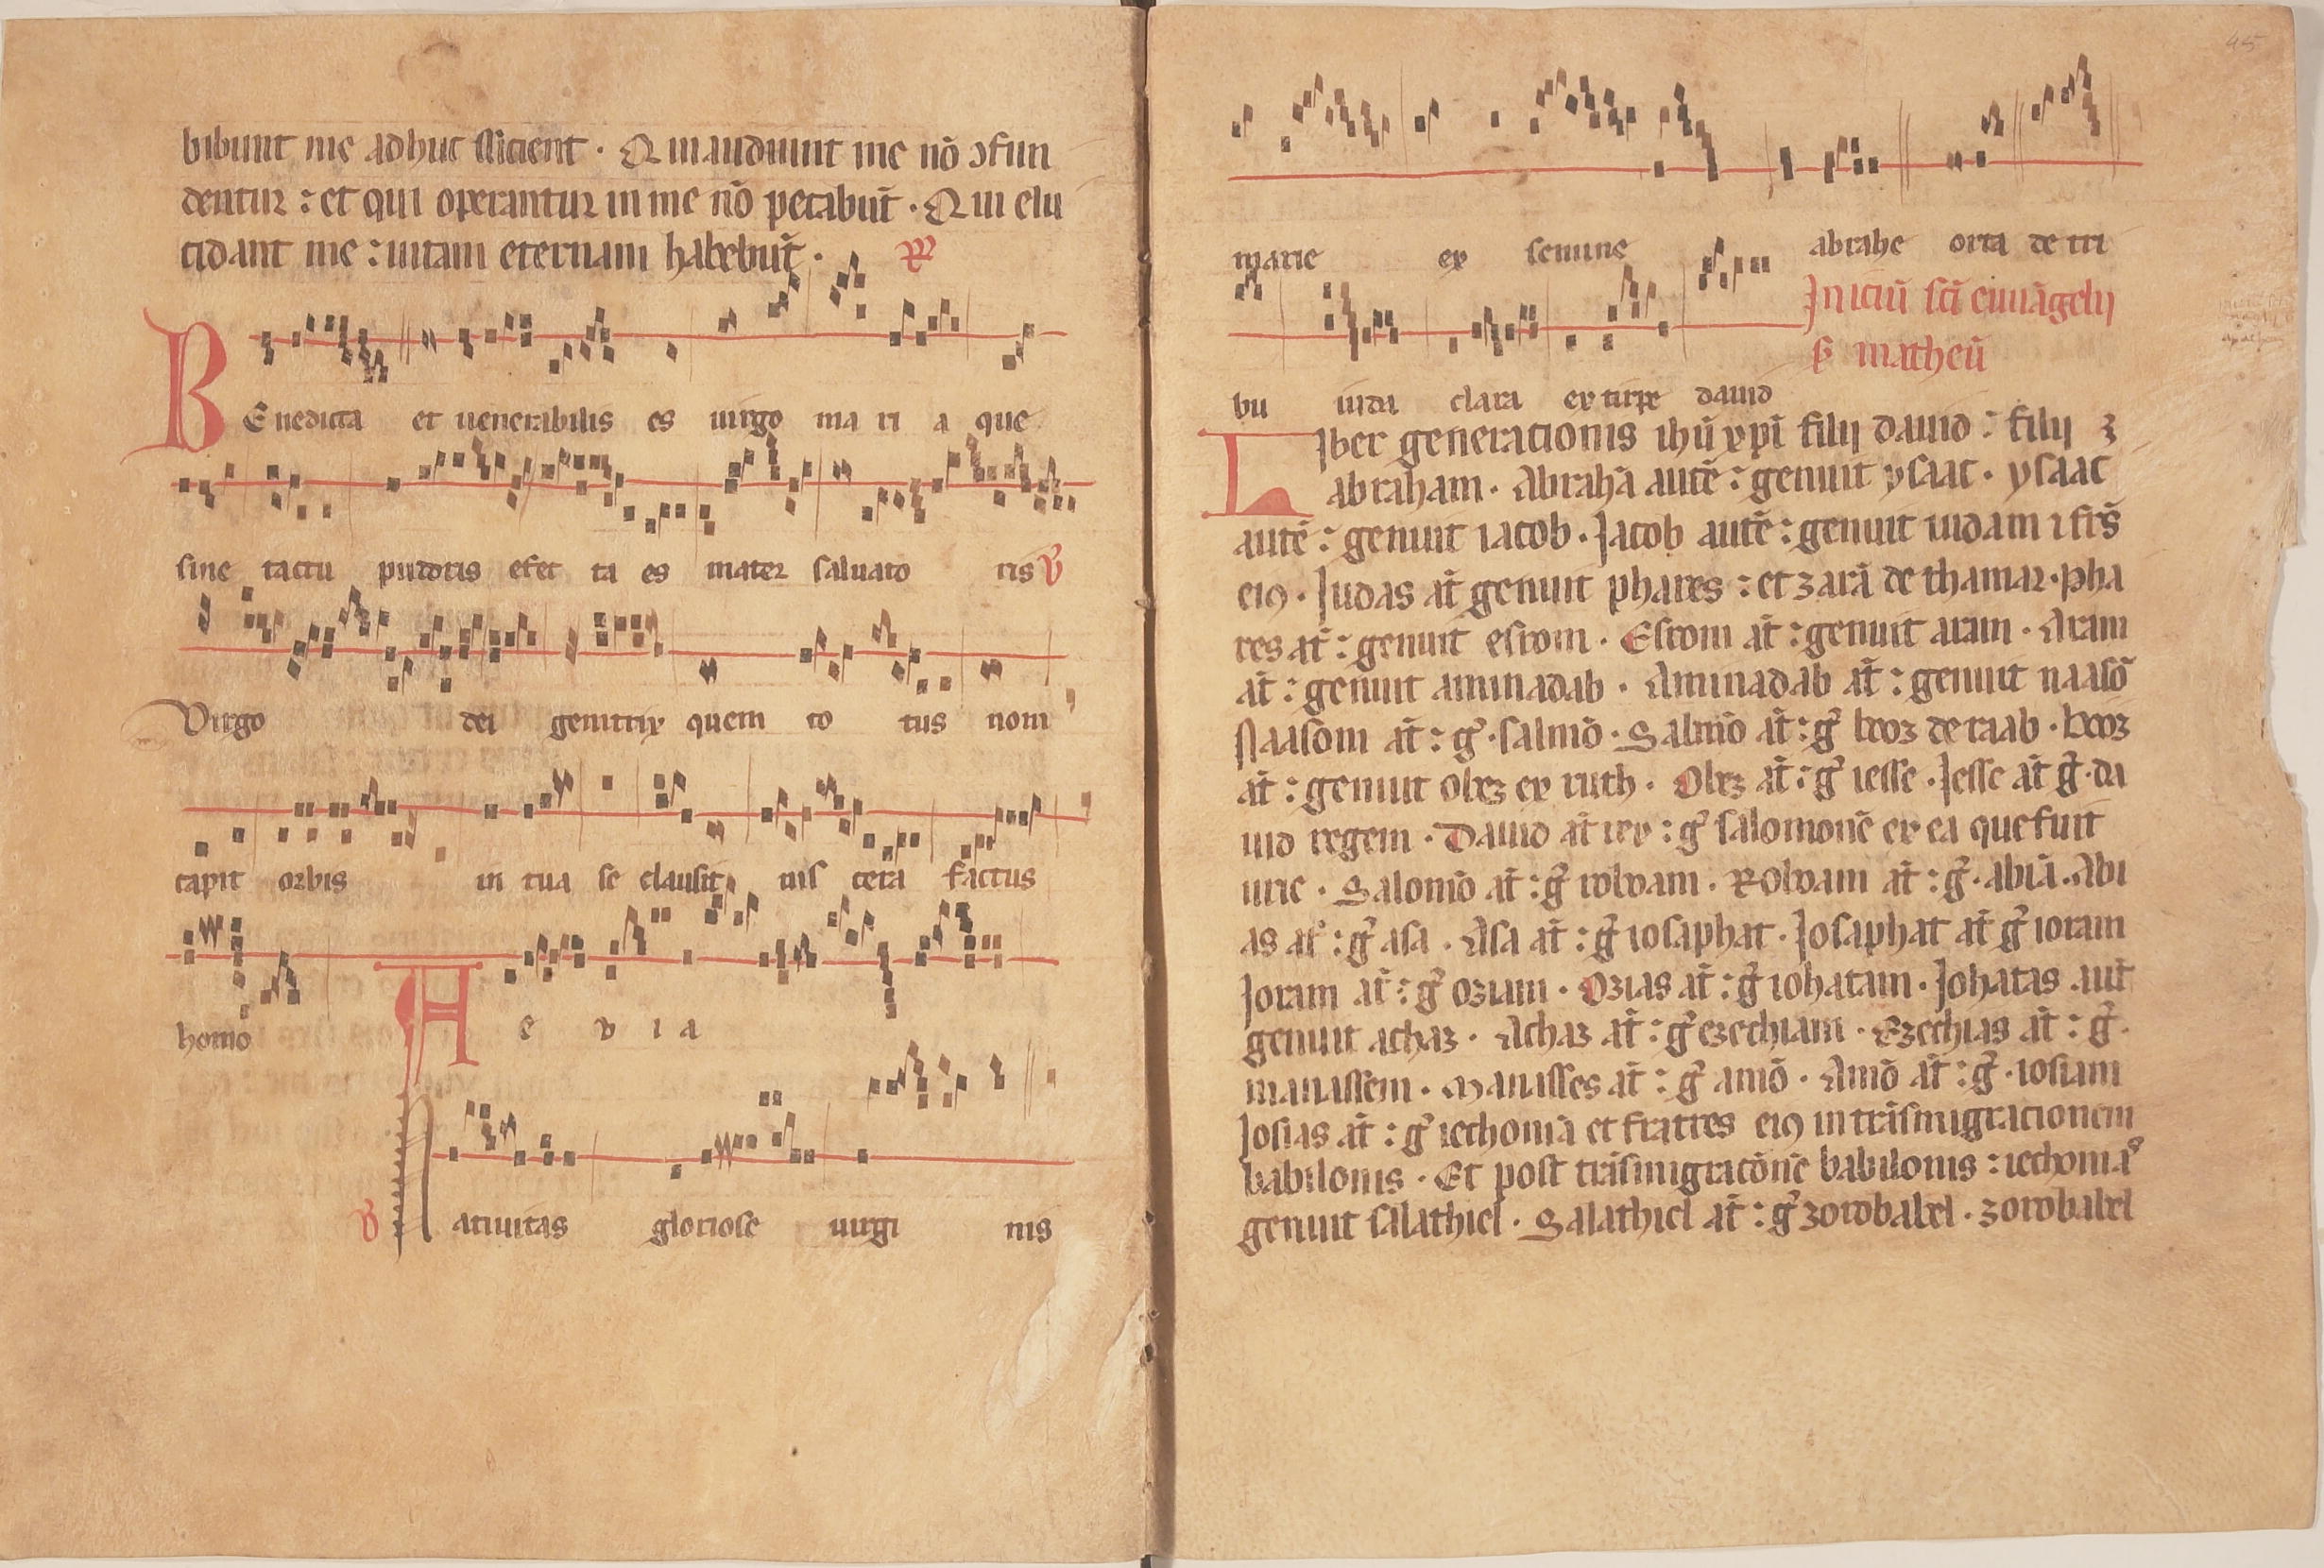 bibunt me adhuc sicient · Qui audiunt me nō ↄfun
dentur : et qui operantur in me nō pecabūt · Qui elu
cidant me : uitam eternam habebūt ·
Benedicta et uenerabilis es uirgo ma ri a que
sine tactu pudoris efec ta es mater saluato ris ℣
Virgo dei genitrix quem to tus non
capit orbis in tua se clausit uis cera factus
homo A e v i a
℣ Natiuitas gloriose uirgi nis
45
marie ex semine abrahe orta de tri
bu iuda clara ex tirpe dauid
Iniciū sc̄i euuāgelij
s̄ matheū
Liber generacionis ihū xp̄i filij dauid : filij
abraham · Abrahā autē : genuit ysaac · ysaac
autē : genuit iacob · Jacob autē : genuit iudam ⁊ fr̄s
eiꝰ · Judas at̄ genuit phares : et zarā de thamar · Pha
res at̄ : genuit esrom · Esrom at̄ : genuit aram · Aram
at̄ : genuit aminadab · Aminadab at̄ : genuit naasō
Naasom at̄ : g̉ · salmō · Salmō at̄ : g̉ booz de raab · booz
at̄ : genuit obez ex ruth · Obez at̄ : g̉ iesse · Jesse at̄ g̉ · da
uid regem · Dauid at̄ rex : g̉ salomonē ex ea que fuit
urie · Salomō at̄ : g̉ roboam · Roboam at̄ : g̉ · abiā · Abi
as at̄ : g̉ asa · Asa at̄ : g̉ iosaphat · Josaphat at̄ g̉ ioram
Joram at̄ : g̉ oziam · Ozias at̄ : g̉ iohatam · Johatas aut̄
genuit achaz · Achaz at̄ : g̉ ezechiam · Ezechias at̄ : g̉ ·
manassem · Manasses at̄ : g̉ amō · Amō at̄ : g̉ · iosiam
Josias at̄ : g̉ iechoniā et fratres eiꝰ in trāsmigracionem
babilonis · Et post trāsmigracōnē babilonis : iechoniaꝰ
genuit salathiel · Salathiel at̄ : g̉ zorobabel · zorobabel